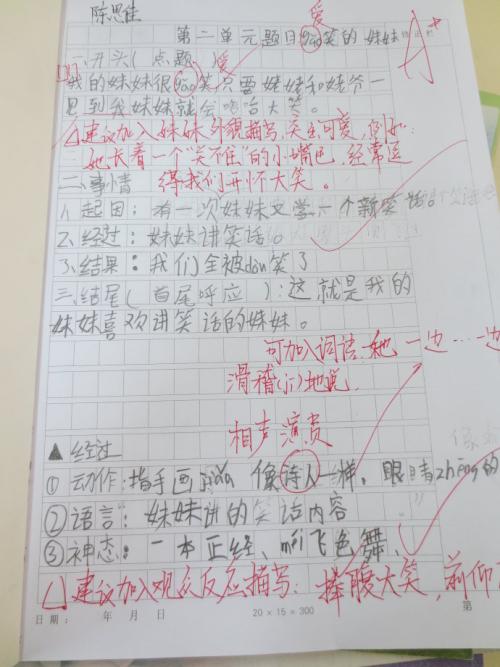 陈思佳
爱
第二单元题目:gǎo笑的妹妹
一、开头(点题) 爱
我的妹妹很gǎo笑只要姥姥和姥爷一
见到我妹妹就会哈哈大笑。
建议加入妹妹外貌描写,突出可爱,例如:
她长着一个“笑不住”的小嘴巴,经常逗
二、事情 得我们开怀大笑。
1.起因:有一次妹妹又学一个新笑话。
2.经过:妹妹讲笑话。
3.结果:我们全被dòu笑了
三.结尾(首尾呼应):这就是我的
妹妹喜欢讲笑话的妹妹。
可加入词语:她一边…一边
滑稽(jī)地说
相声演员
▲经过
①动作:指手画jiǎo 像诗人一样,眼睛zhēng的
②语言:妹妹讲的笑话内容
③神态:一本正经、méi飞色舞、
建议加入观众反应描写:捧腹大笑,前仰
日期: 年 月 日 20×15=300 第